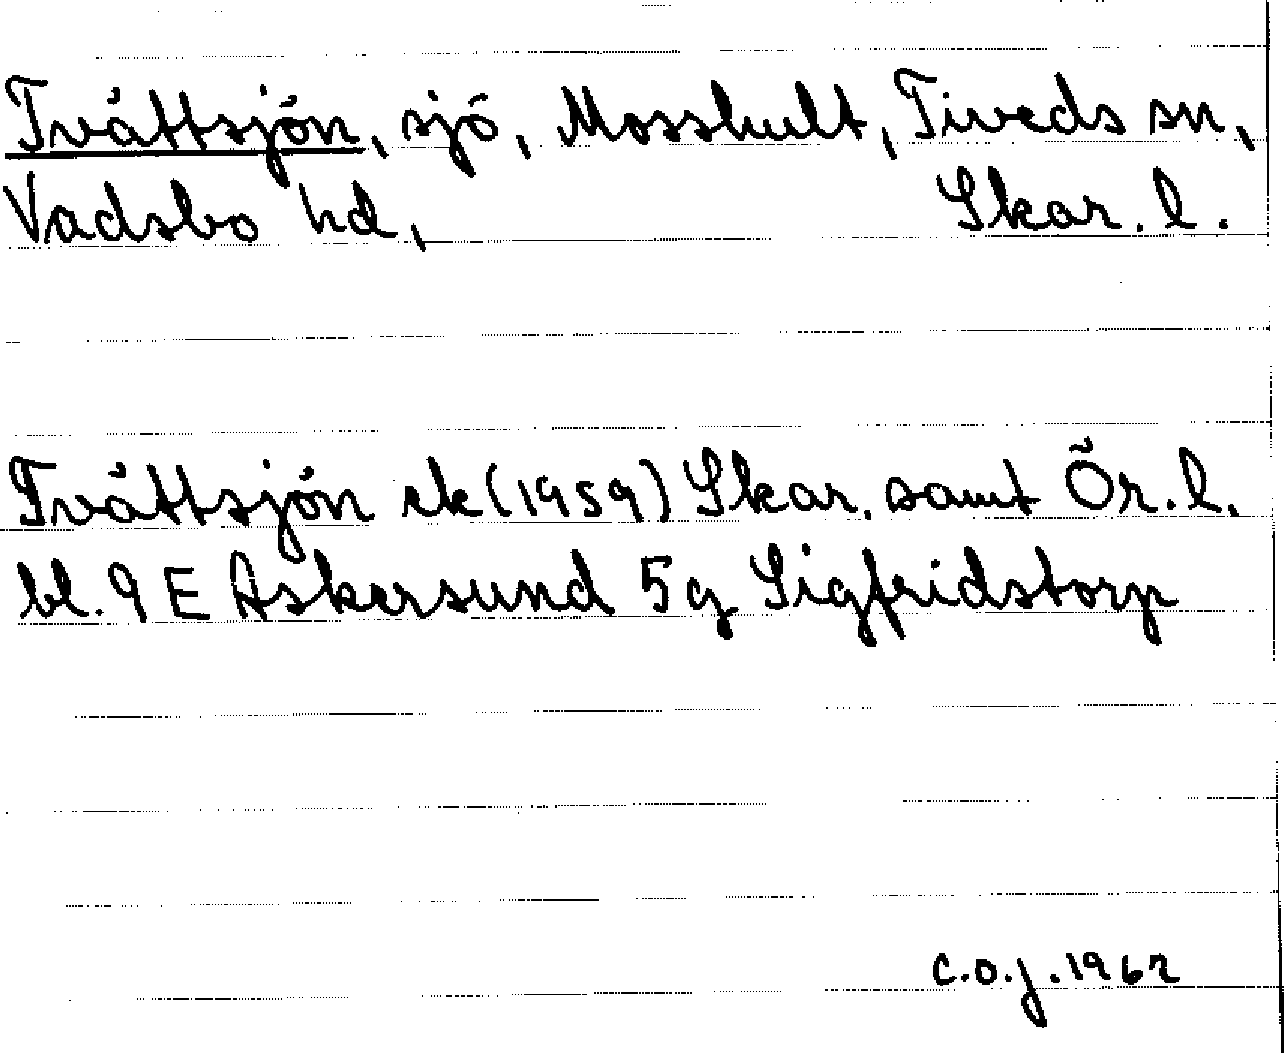 Tvättsjön, sjö, Mosshult, Tiveds sn,
Vadsbo hd, Skar. l.
Tvättsjön ek (1959) Skar. samt Ör. l.
bl. 9 E Askersund 5 g Sigfridstorp
C.O.J. 1962